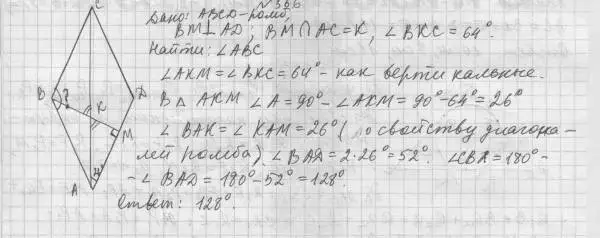 № 366
Дано: ABCD-ромб,
BM⊥AD; BM∩AC=K, ∠BKC=64°.
Найти: ∠ABC
∠AKM=∠BKC=64°- как вертикальные.
В △ AKM ∠A=90°-∠AKM=90°-64°=26°
∠BAK=∠KAM=26° (по свойству диагона-
лей ромба) ∠BAD=2·26°=52°. ∠CBA=180°-
-∠BAD=180°-52°=128°.
Ответ: 128°.
C
B
?
K
D
M
A